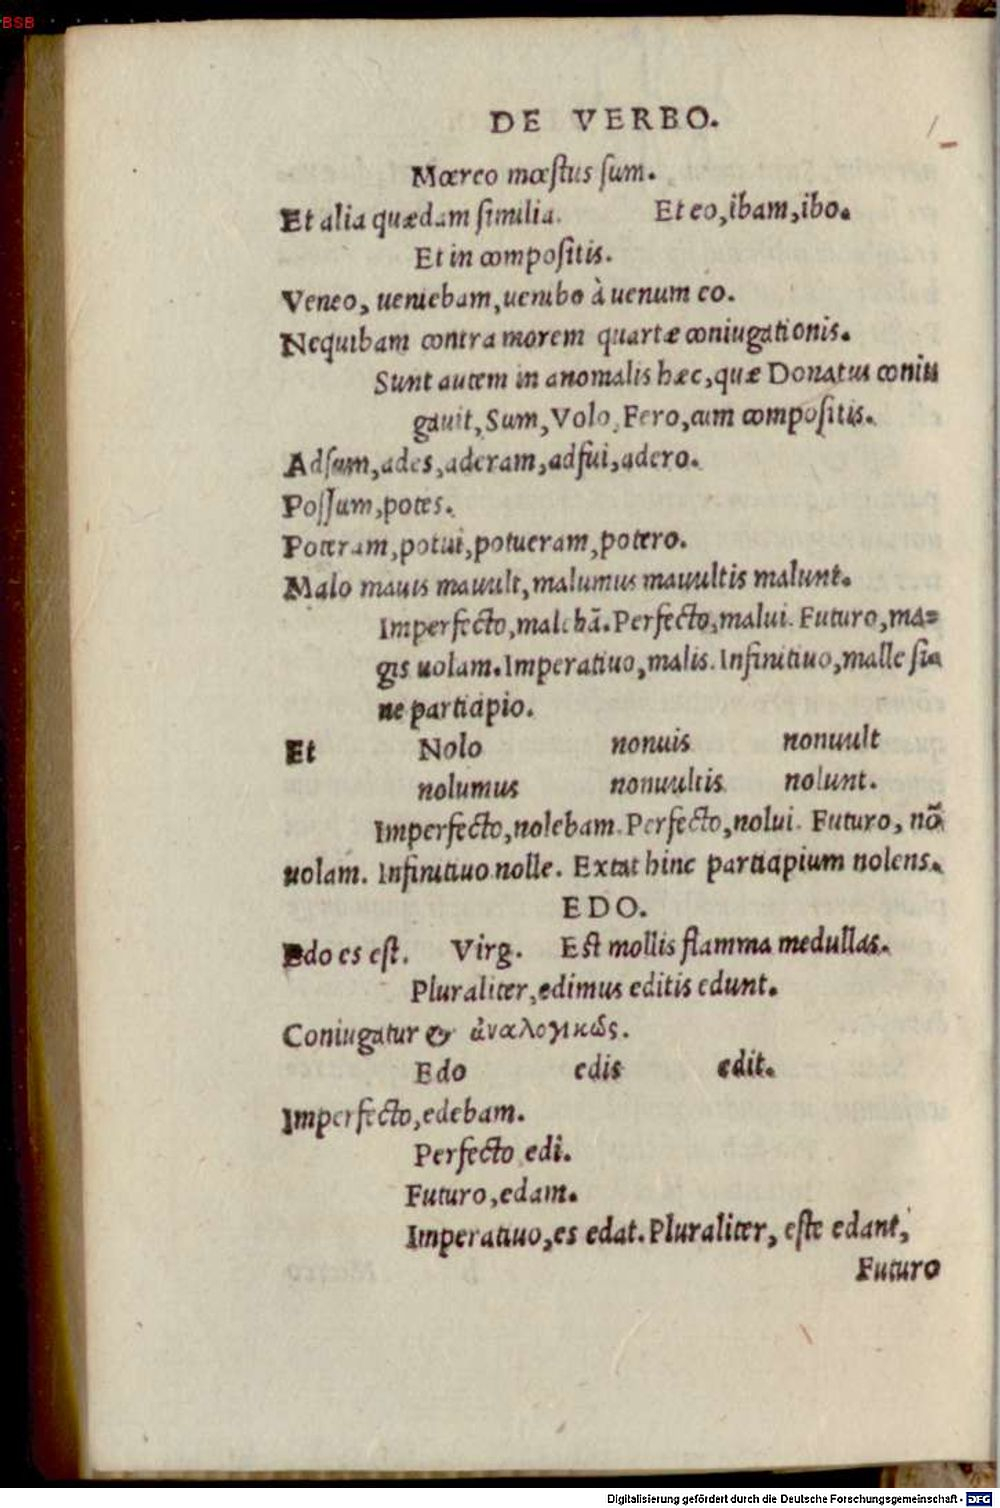 BSB
DE VERBO.
Mœreo mœstus sum.
Et alia quædam similia. Et eo, ibam, ibo.
Et in compositis.
Veneo, ueniebam, uenibo à uenum eo.
Nequibam contra morem quartæ coniugationis.
Sunt autem in anomalis hæc, quæ Donatus coniu
gauit, Sum, Volo, Fero, cum compositis.
Adsum, ades, aderam, adfui, adero.
Possum, potes.
Poteram, potui, potueram, potero.
Malo mauis mauult, malumus mauultis malunt.
Imperfecto, malebā. Perfecto, malui. Futuro, ma=
gis uolam. Imperatiuo, malis. Infinitiuo, malle si=
ne participio.
Et Nolo nonuis nonuult
nolumus nonuultis nolunt.
Imperfecto, nolebam. Perfecto, nolui. Futuro, nō
uolam. Infinitiuo nolle. Extat hinc participium nolens.
EDO.
Edo es est. Virg. Est mollis flamma medullas.
Pluraliter, edimus editis edunt.
Coniugatur & ἀναλογικῶς.
Edo edis edit.
Imperfecto, edebam.
Perfecto edi.
Futuro, edam.
Imperatiuo, es edat. Pluraliter, este edant,
Futuro
Digitalisierung gefördert durch die Deutsche Forschungsgemeinschaft - DFG